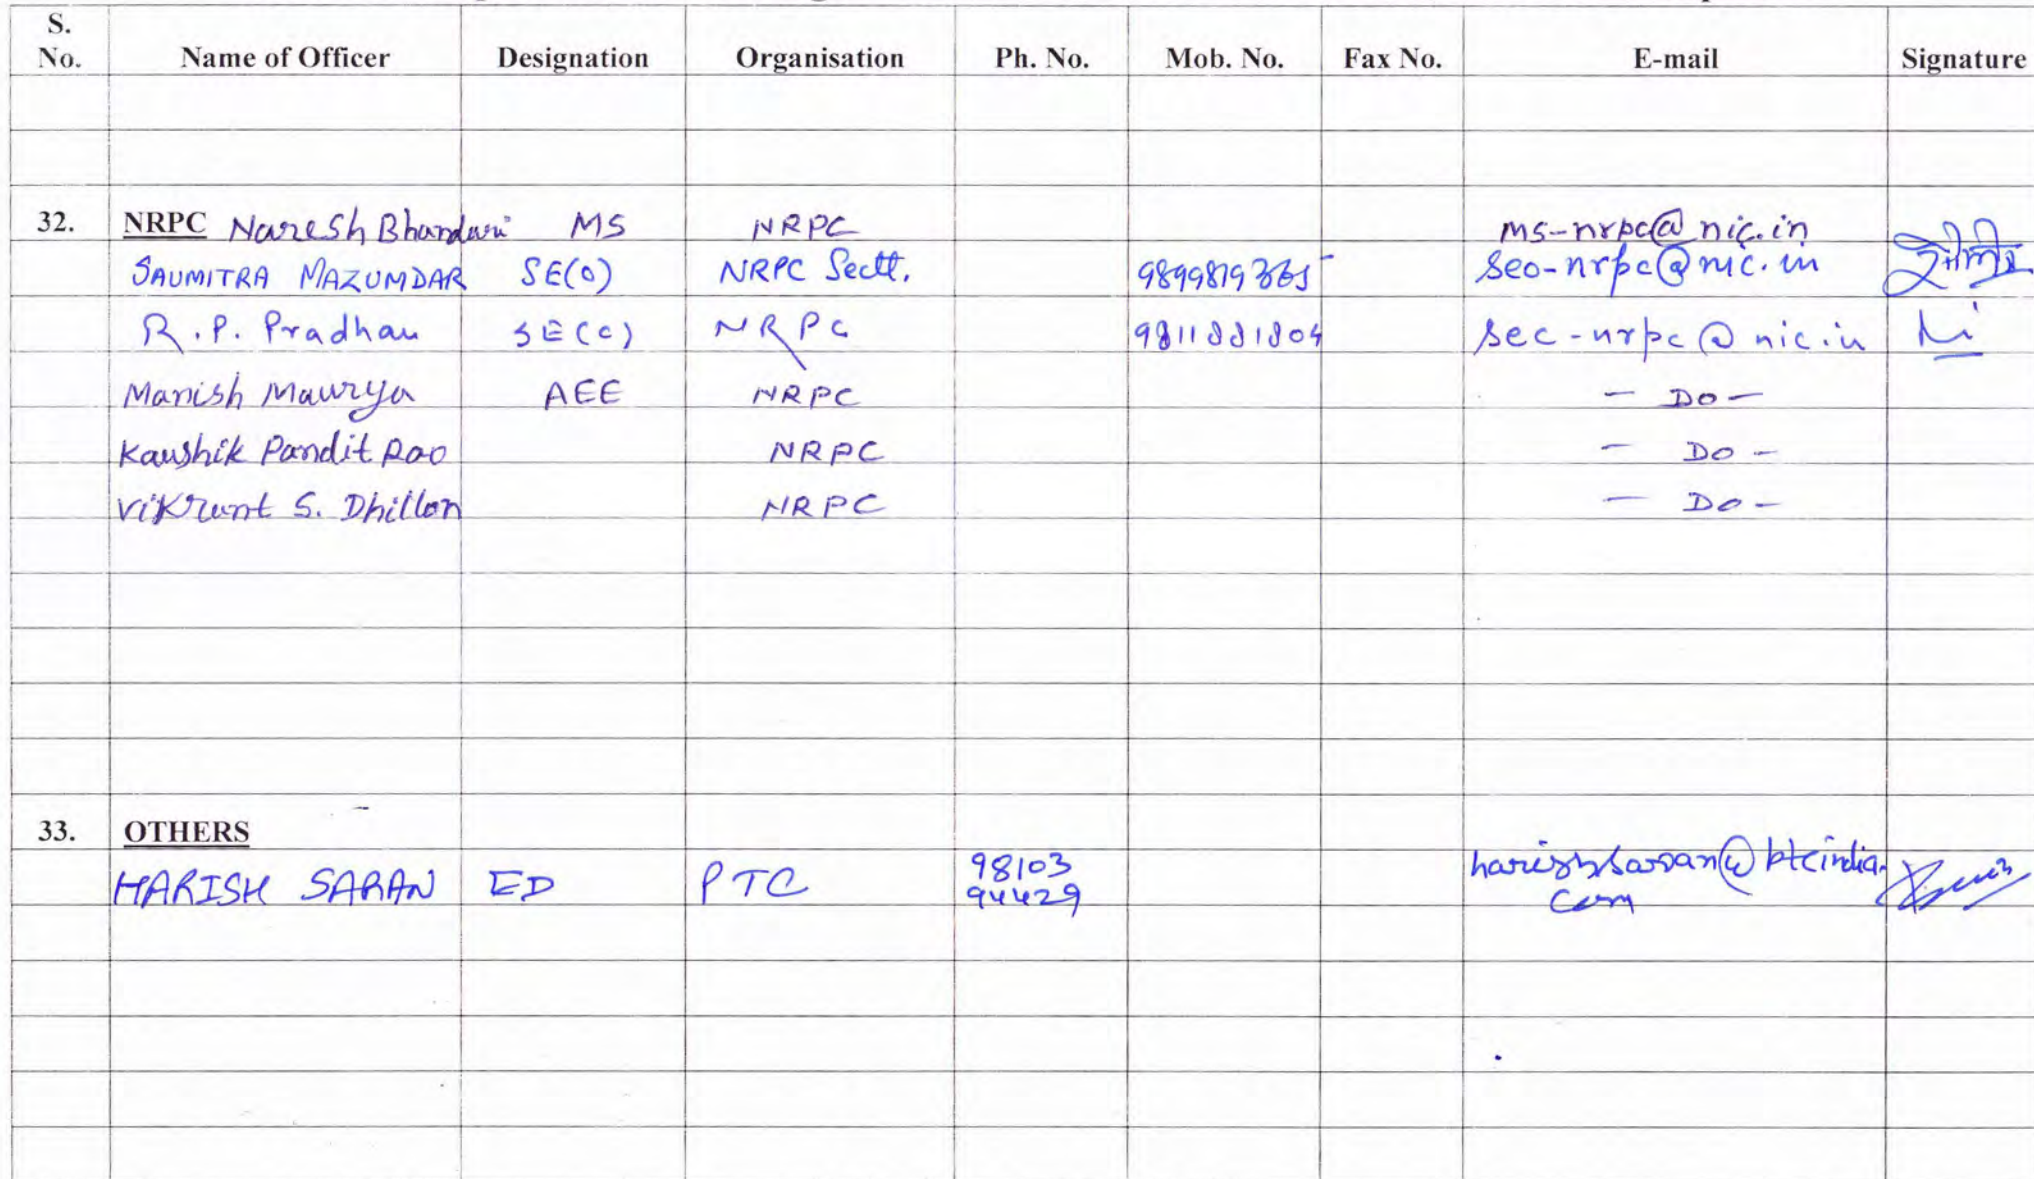 S. No. Name of Officer Designation Organisation Ph. No. Mob. No. Fax No. E-mail Signature
32. NRPC Naresh Bhandari MS NRPC ms-nrpc@nic.in
SAUMITRA MAZUMDAR SE(O) NRPC Sectt. 9899819365 seo-nrpc@nic.in
R.P. Pradhan SE(C) NRPC sec-nrpc@nic.in
Manish Maurya AEE NRPC - DO -
Kaushik Pandit Rao NRPC - DO -
Vikrant S. Dhillon NRPC - DO -
33. OTHERS
HARISH SARAN ED PTC 98103 harishsaran@ptcindia.
94429 com